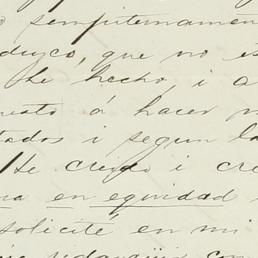 sempiternamen
duzco, que no es
de hecho, i a
esto á hacer
tados i segun la
He creido i cre
en equidad
solicité en mi